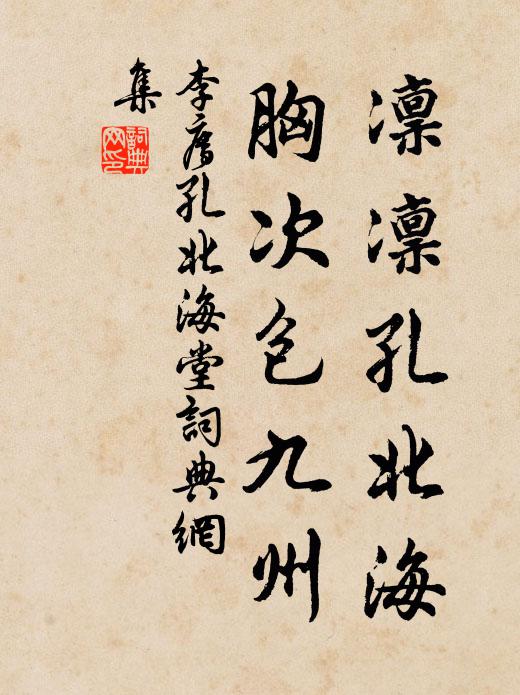 凛凛孔北海
胸次包九州
李廌孔北海堂詞典網
集
詞典
网印